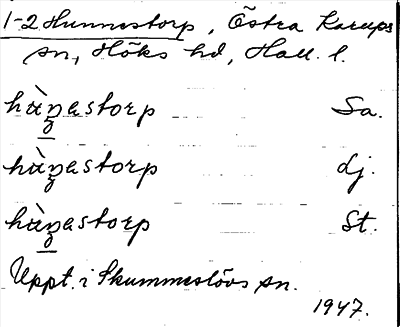 1-2 Hunnestorp, Östra Karups
sn, Höks hd, Hall. l.
hùn̠astorp Sa.
hùnastorp dj.
hùn̠astorp St.
Uppt. i Skummeslövs sn.
1947.